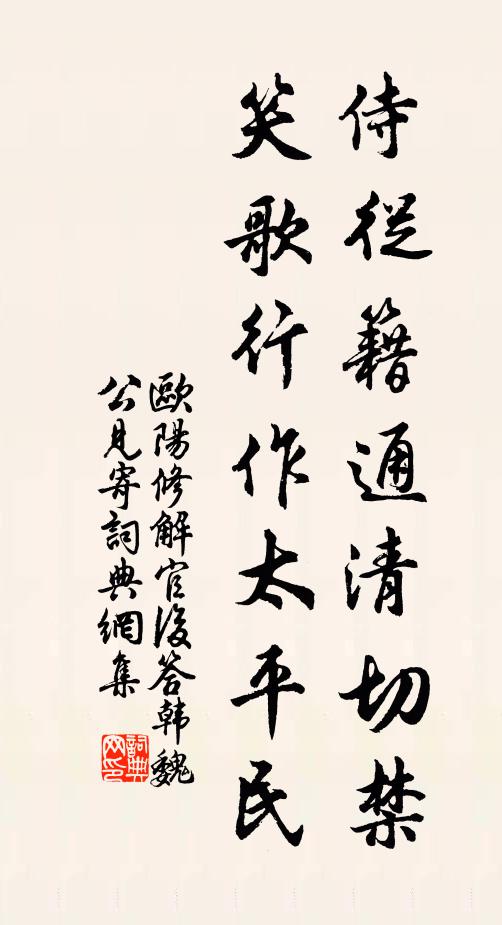 侍從籍通清切禁
笑歌行作太平民
歐陽修解官後答韓魏
公見寄詞典網集
詞典
网印